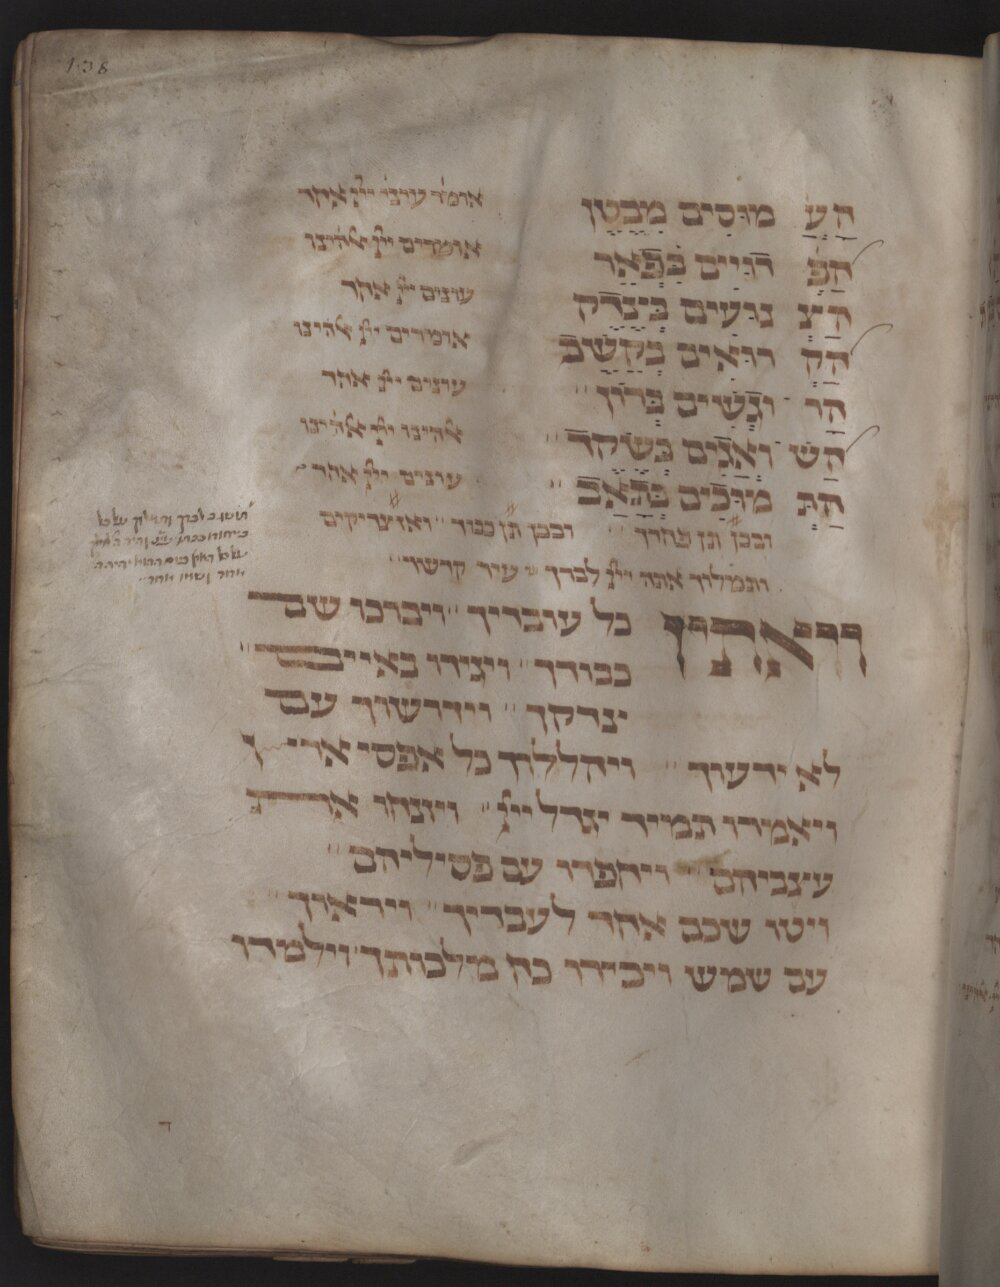 138
הע מוסים מבטן אומ' עוני' ייי אחד
הפ דויים בפאר אומרים ייי אלהינו
הצ נועים בצדק עונים ייי אחד
הק רואים בקשב אומרים ייי אלהינו
הר וגשים ברון עונים ייי אחד
הש ואגים בשקד אלהינו ייי אלהינו
הת מוכים בתאב עונים ייי אחד
ובכן תן פחדך ובכן תן כבוד ואז צדיקים
ותמלוך אתה ייי לבדך עיר קדשך
ויאתיו כל עובדיך ויברכו שם
כבודך ויגידו באיים
צדקך וידרשוך עם
לא ידעוך ויהללוך כל אפסי ארץ
ויאמרו תמיד יגדל ייי ויזנחו את
עצביהם ויחפרו עם פסיליהם
ויטו שכם אחד לעבדיך וייראוך
עם שמש ויכירו כח מלכותך וילמדו